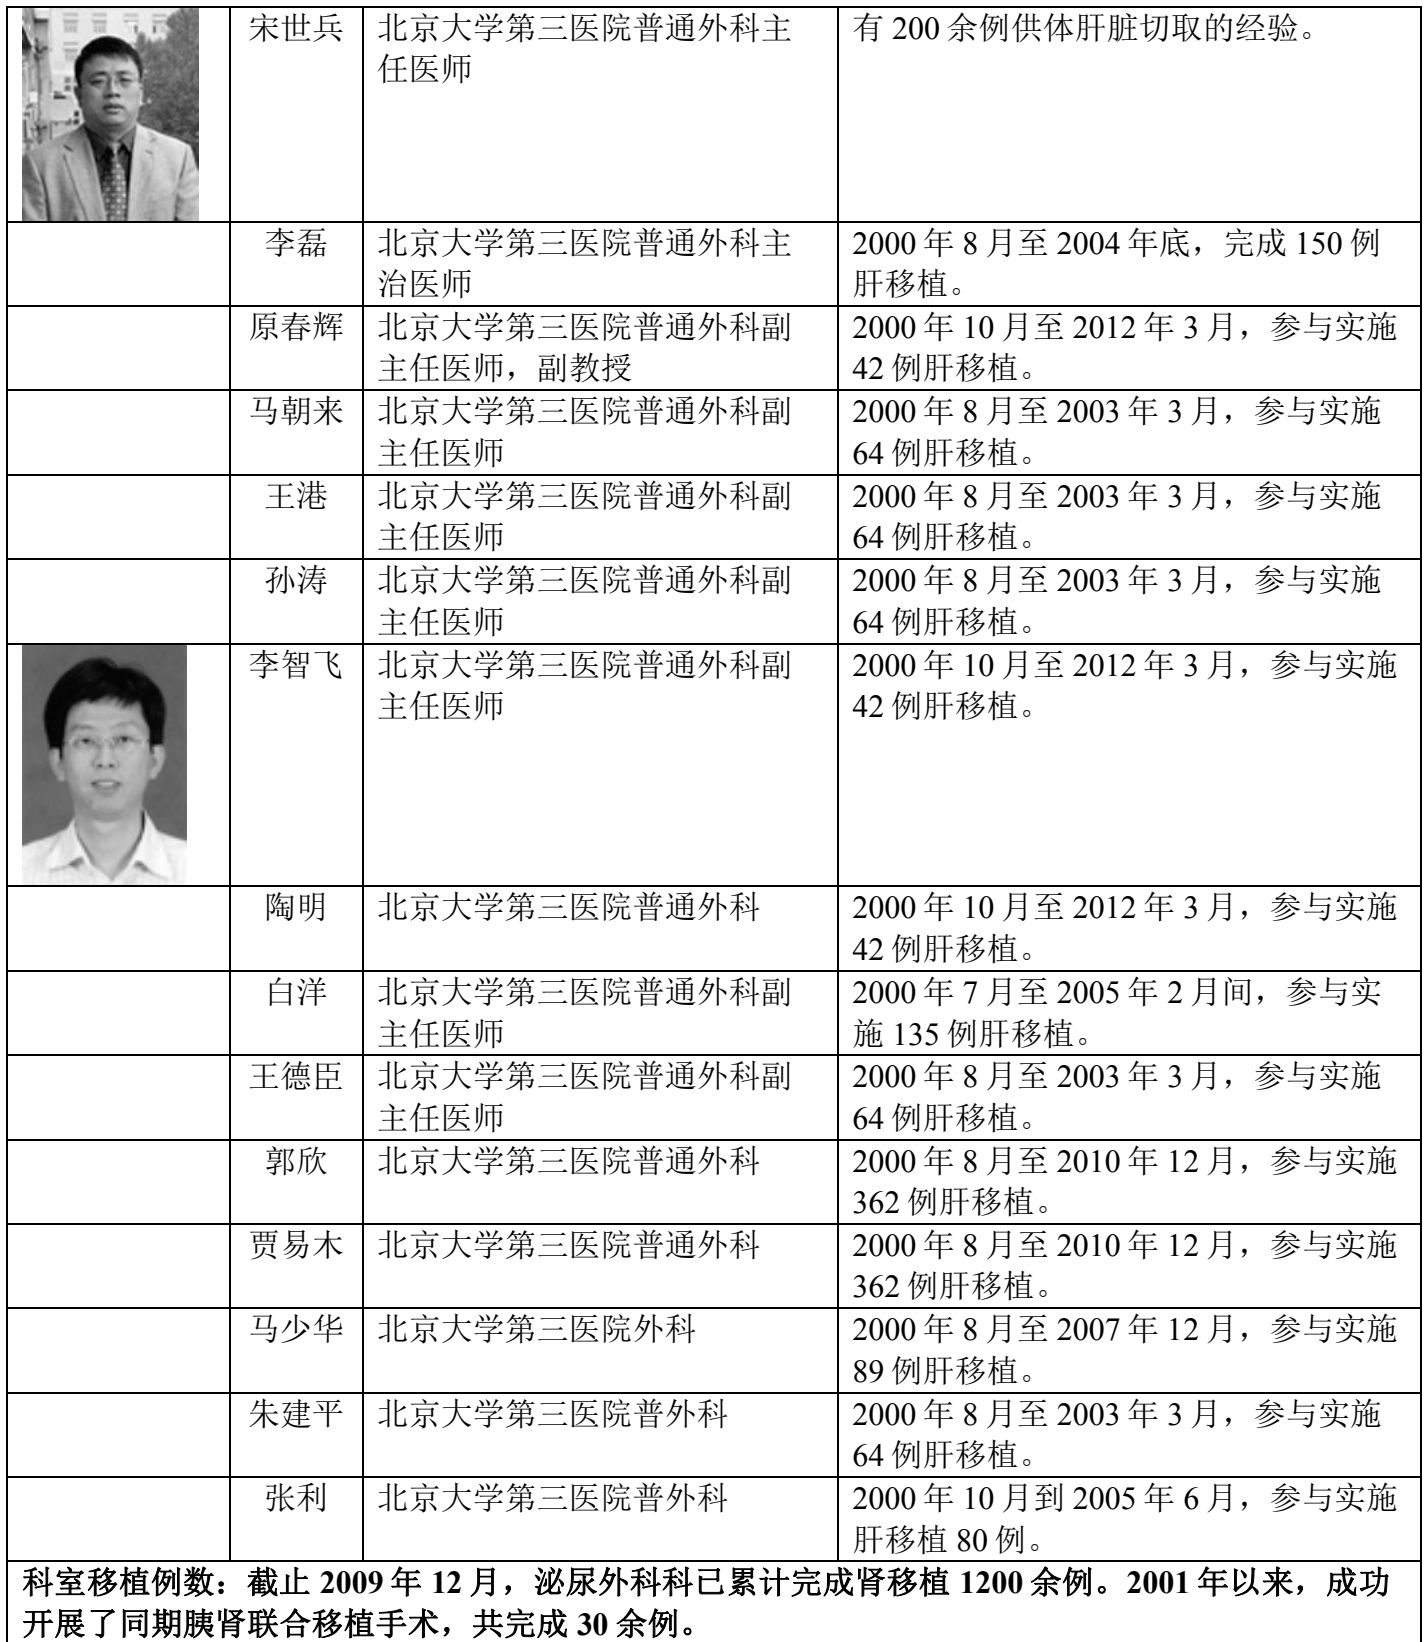 宋世兵
北京大学第三医院普通外科主
任医师
有 200 余例供体肝脏切取的经验。
李磊
北京大学第三医院普通外科主
治医师
2000 年 8 月至 2004 年底，完成 150 例
肝移植。
原春辉
北京大学第三医院普通外科副
主任医师，副教授
2000 年 10 月至 2012 年 3 月，参与实施
42 例肝移植。
马朝来
北京大学第三医院普通外科副
主任医师
2000 年 8 月至 2003 年 3 月，参与实施
64 例肝移植。
王港
北京大学第三医院普通外科副
主任医师
2000 年 8 月至 2003 年 3 月，参与实施
64 例肝移植。
孙涛
北京大学第三医院普通外科副
主任医师
2000 年 8 月至 2003 年 3 月，参与实施
64 例肝移植。
李智飞
北京大学第三医院普通外科副
主任医师
2000 年 10 月至 2012 年 3 月，参与实施
42 例肝移植。
陶明
北京大学第三医院普通外科
2000 年 10 月至 2012 年 3 月，参与实施
42 例肝移植。
白洋
北京大学第三医院普通外科副
主任医师
2000 年 7 月至 2005 年 2 月间，参与实
施 135 例肝移植。
王德臣
北京大学第三医院普通外科副
主任医师
2000 年 8 月至 2003 年 3 月，参与实施
64 例肝移植。
郭欣
北京大学第三医院普通外科
2000 年 8 月至 2010 年 12 月，参与实施
362 例肝移植。
贾易木
北京大学第三医院普通外科
2000 年 8 月至 2010 年 12 月，参与实施
362 例肝移植。
马少华
北京大学第三医院外科
2000 年 8 月至 2007 年 12 月，参与实施
89 例肝移植。
朱建平
北京大学第三医院普外科
2000 年 8 月至 2003 年 3 月，参与实施
64 例肝移植。
张利
北京大学第三医院普外科
2000 年 10 月到 2005 年 6 月，参与实施
肝移植 80 例。
科室移植例数：截止 2009 年 12 月，泌尿外科科已累计完成肾移植 1200 余例。2001 年以来，成功
开展了同期胰肾联合移植手术，共完成 30 余例。